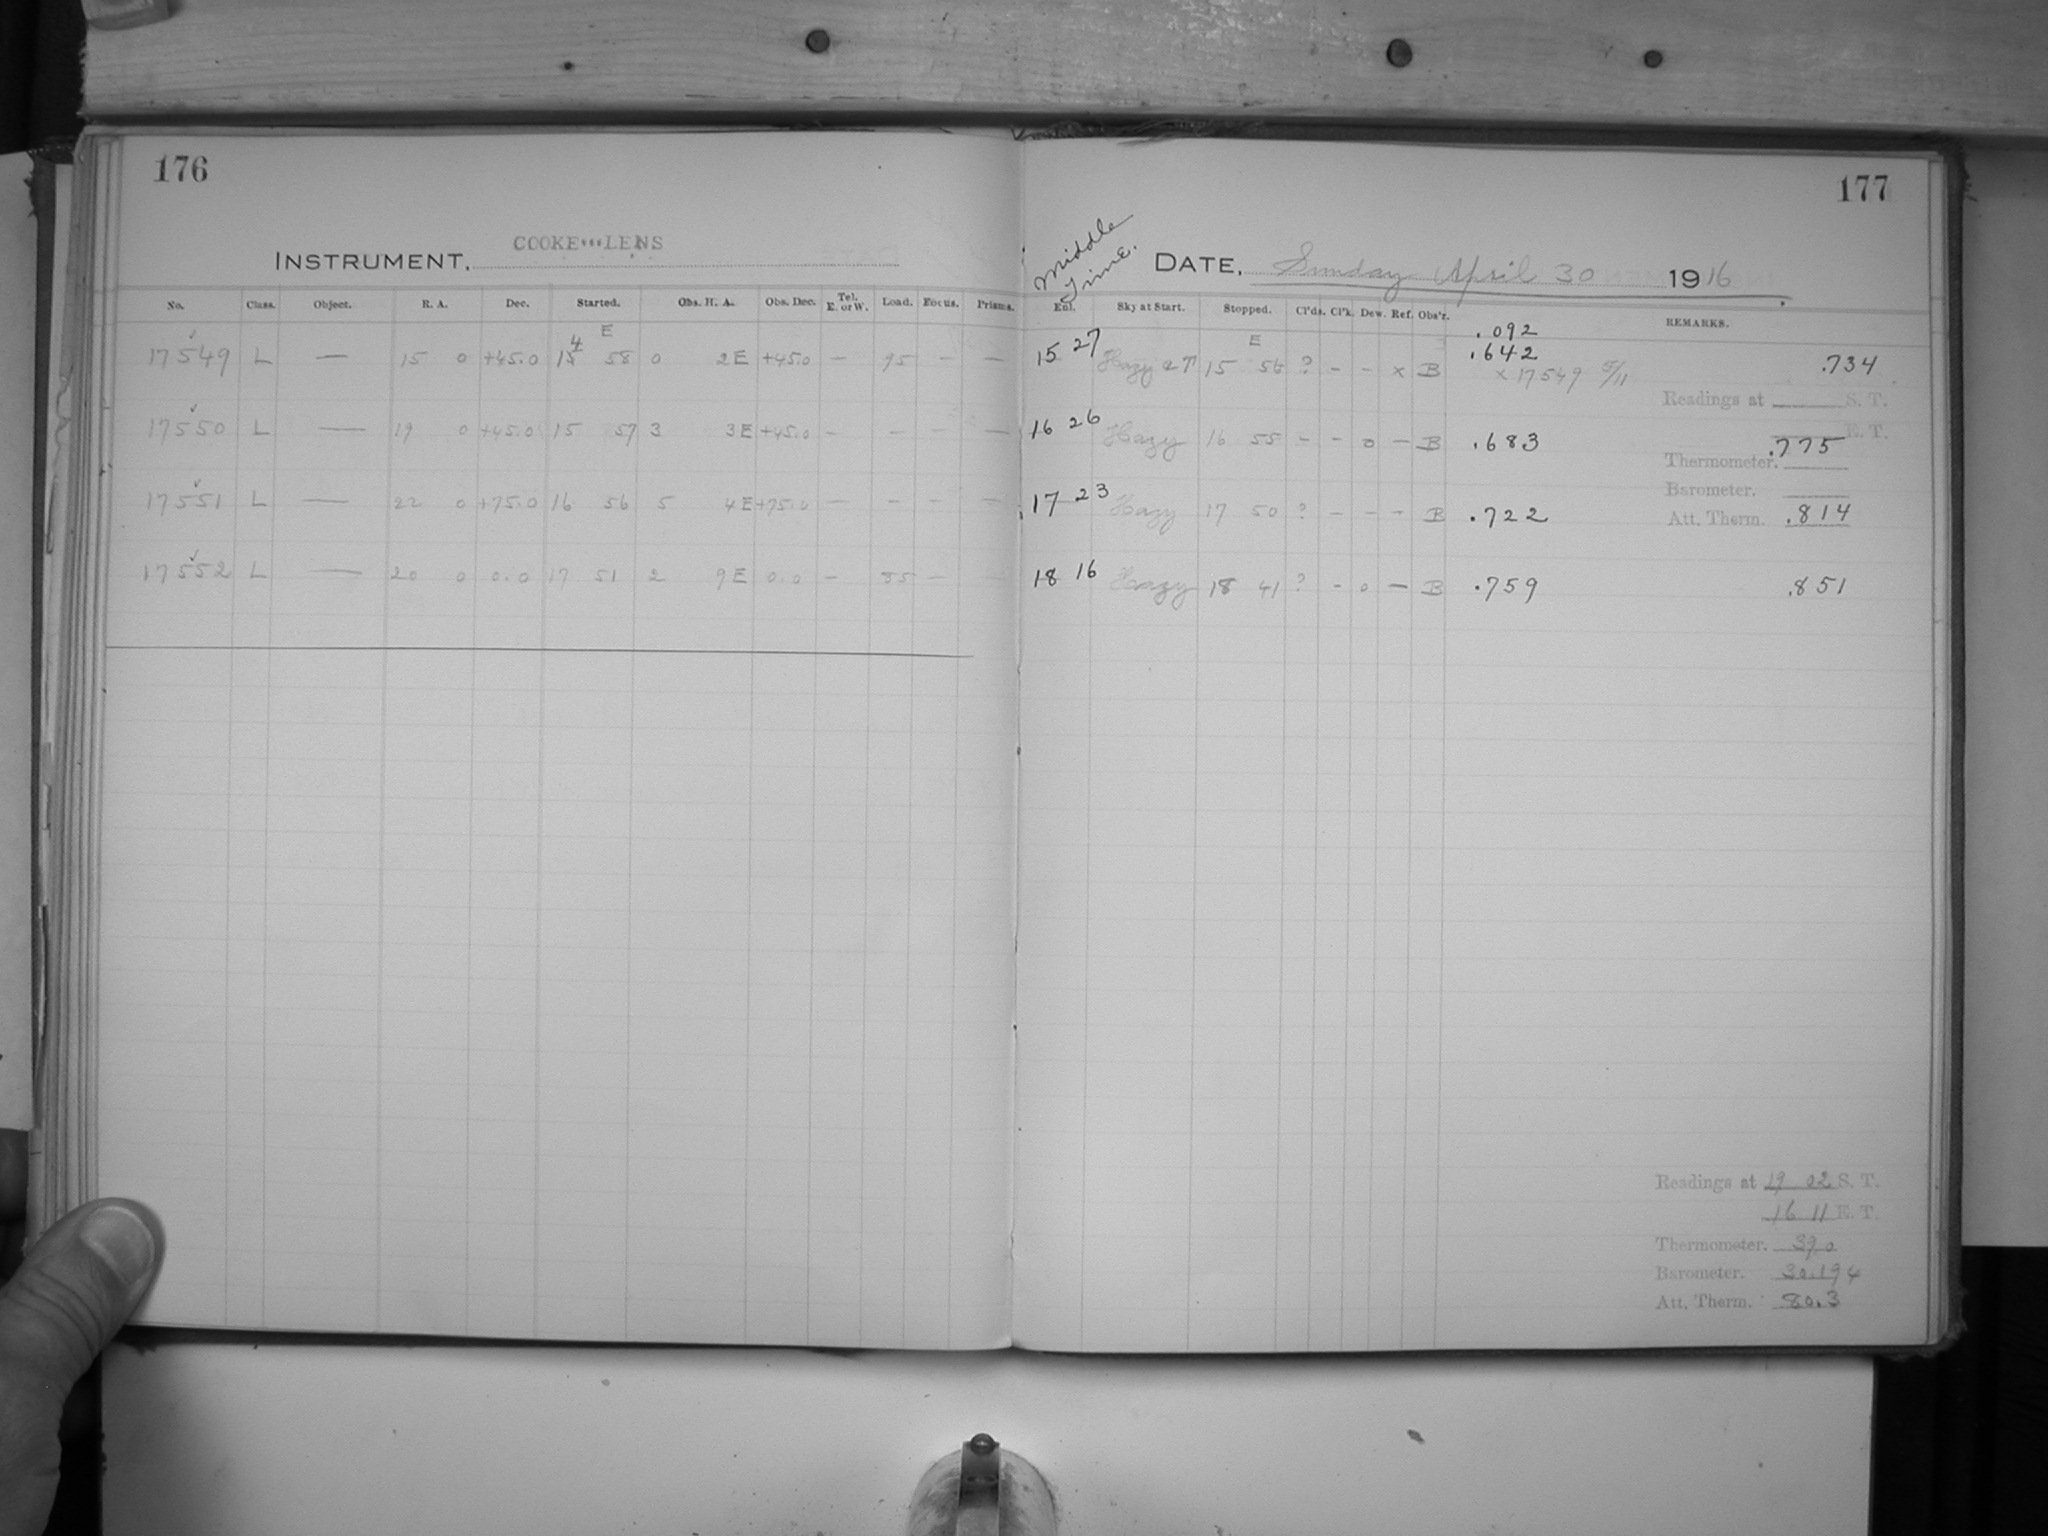 176
COOKE LENS
INSTRUMENT.
No. Class. Object. R. A. Dec. Started. Obs. H. A. Obs. Dec. Tel. E. or W. Load. Focus. Prisms.
4 E
17549 L — 15 0 +45.0 15 58 0 2E +45.0 — 95 — —
17550 L — 19 0 +45.0 15 57 3 3E +45.0 — — — —
17551 L — 22 0 +75.0 16 56 5 4E +75.0 — — — —
17552 L — 20 0 0.0 17 51 2 9E 0.0 — 85 — —
177
Middle Time.
DATE, Sunday April 30 1916
Enl. Sky at Start. Stopped. Cl'ds. Cl'k. Dew. Ref. Obs'r. REMARKS.
E .092
15 27 Hazy 15 56 ? - - x B .642 .734
x 17549 5/11
Readings at S. T.
E. T.
16 26 Hazy 16 55 - - 0 - B .683 .775
Thermometer.
Barometer.
17 23 Hazy 17 50 ? - - - B .722 .814
Att. Therm.
18 16 Hazy 18 41 ? - 0 — B .759 .851
Readings at 19 02 S. T.
16 11 E. T.
Thermometer. 39.0
Barometer. 30.194
Att. Therm. 80.3